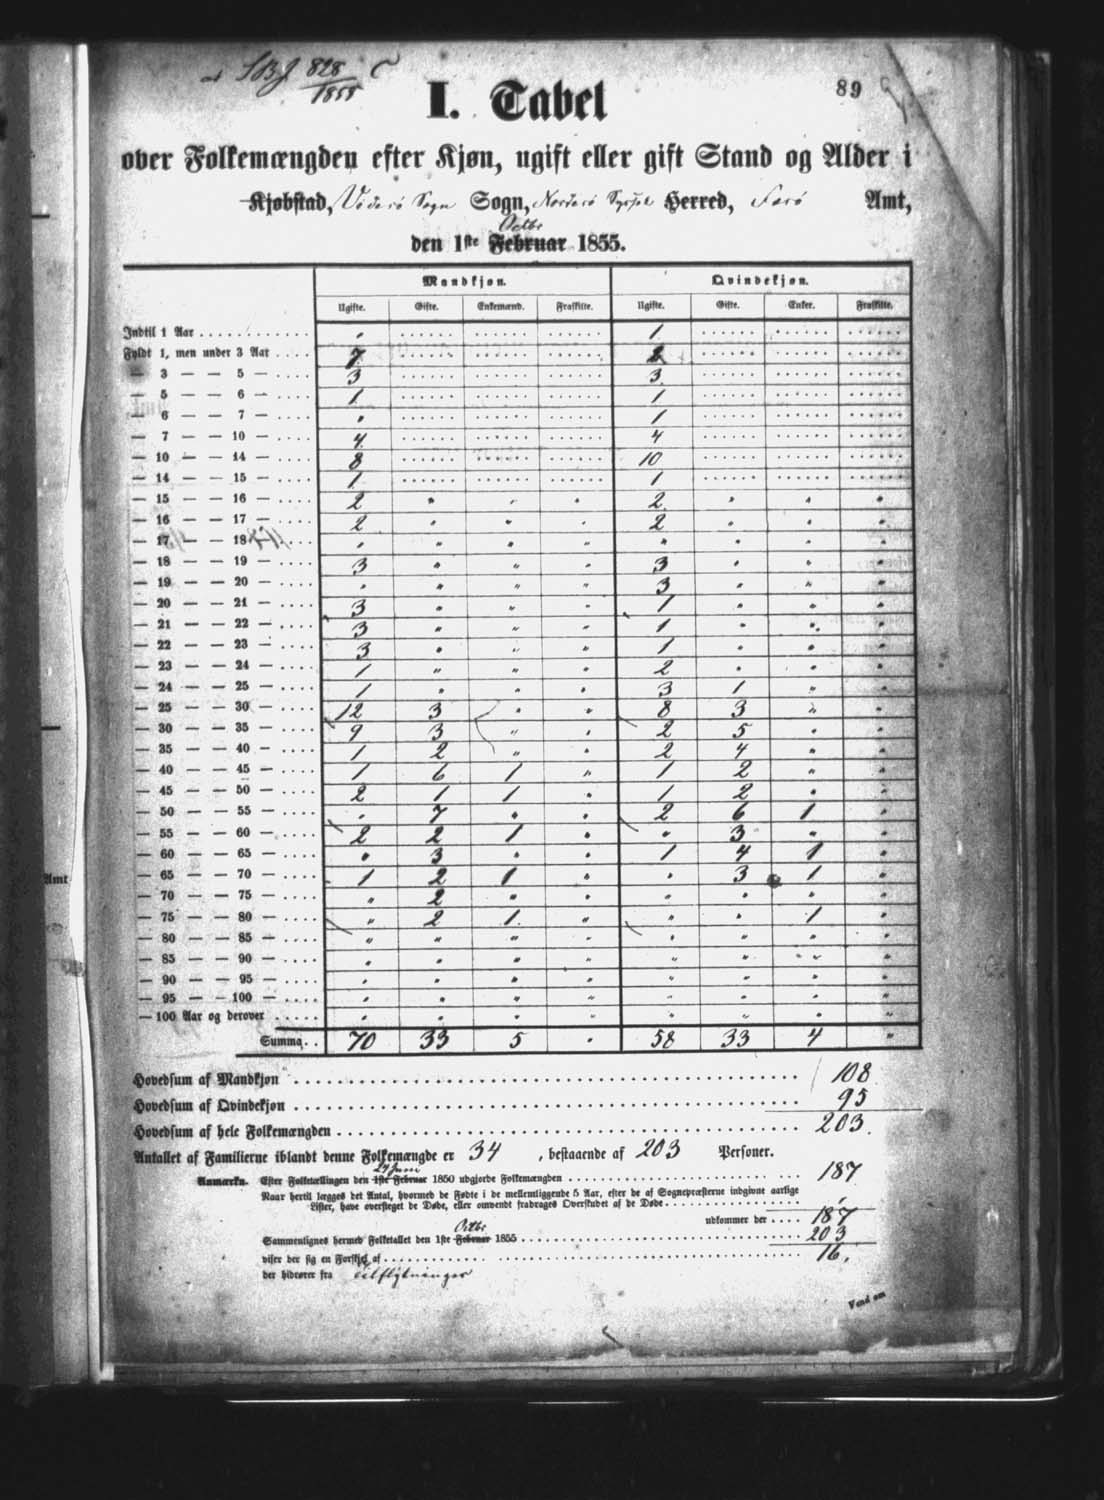 SBJ 828/1855
89
I. Tabel
over Folkemængden efter Kjøn, ugift eller gift Stand og Alder i
Kjøbstad, Viderø Sogn Sogn, Norderø Syssel Herred, Færø Amt,
Octbr
den 1ste Februar 1855.
Mandkjøn. Qvindekjøn.
Ugifte. Gifte. Enkemænd. Fraskilte. Ugifte. Gifte. Enker. Fraskilte.
Indtil 1 Aar . 1
Fyldt 1, men under 3 Aar 7 2
— 3 — — 5 — 3 3
— 5 — — 6 — 1 1
— 6 — — 7 — . 1
— 7 — — 10 — 4 4
— 10 — — 14 — 8 10
— 14 — — 15 — 1 1
— 15 — — 16 — 2 " " " 2 " " "
— 16 — — 17 — 2 " " " 2 " " "
— 17 — — 18 — " " " " " " " "
— 18 — — 19 — 3 " " " 3 " " "
— 19 — — 20 — " " " " 3 " " "
— 20 — — 21 — 3 " " " 1 " " "
— 21 — — 22 — 3 " " " 1 " " "
— 22 — — 23 — 3 " " " 1 " " "
— 23 — — 24 — 1 " " " 2 " " "
— 24 — — 25 — 1 " " " 3 1 " "
— 25 — — 30 — 12 3 " " 8 3 " "
— 30 — — 35 — 9 3 " " 2 5 " "
— 35 — — 40 — 1 2 " " 2 4 " "
— 40 — — 45 — 1 6 1 " 1 2 " "
— 45 — — 50 — 2 1 1 " 1 2 " "
— 50 — — 55 — " 7 " " 2 6 1 "
— 55 — — 60 — 2 2 1 " " 3 " "
— 60 — — 65 — " 3 " " 1 4 1 "
— 65 — — 70 — 1 2 1 " " 3 1 "
— 70 — — 75 — " 2 " " " " " "
— 75 — — 80 — " 2 1 " " " 1 "
— 80 — — 85 — " " " " " " " "
— 85 — — 90 — " " " " " " " "
— 90 — — 95 — " " " " " " " "
— 95 — — 100 — " " " " " " " "
— 100 Aar og derover " " " " " " " "
Summa. 70 33 5 . 58 33 4 "
Hovedsum af Mandkjøn 108
Hovedsum af Qvindekjøn 95
Hovedsum af hele Folkemængden 203.
Antallet af Familierne iblandt denne Folkemængde er 34, bestaaende af 203 Personer.
24 Juni
Anmærkn. Efter Folketællingen den 1ste Februar 1850 udgjorde Folkemængden 187
Naar hertil lægges det Antal, hvormed de Fødte i de mellemliggende 5 Aar, efter de af Sognepræsterne indgivne aarlige
Lister, have oversteget de Døde, eller omvendt fradrages Overskudet af de Døde
udkommer der 187
Octbr
Sammenlignes hermed Folketallet den 1ste Februar 1855 203
viser der sig en Forskjel af 16.
der hidrører fra tilflytninger
Vend om
Amt